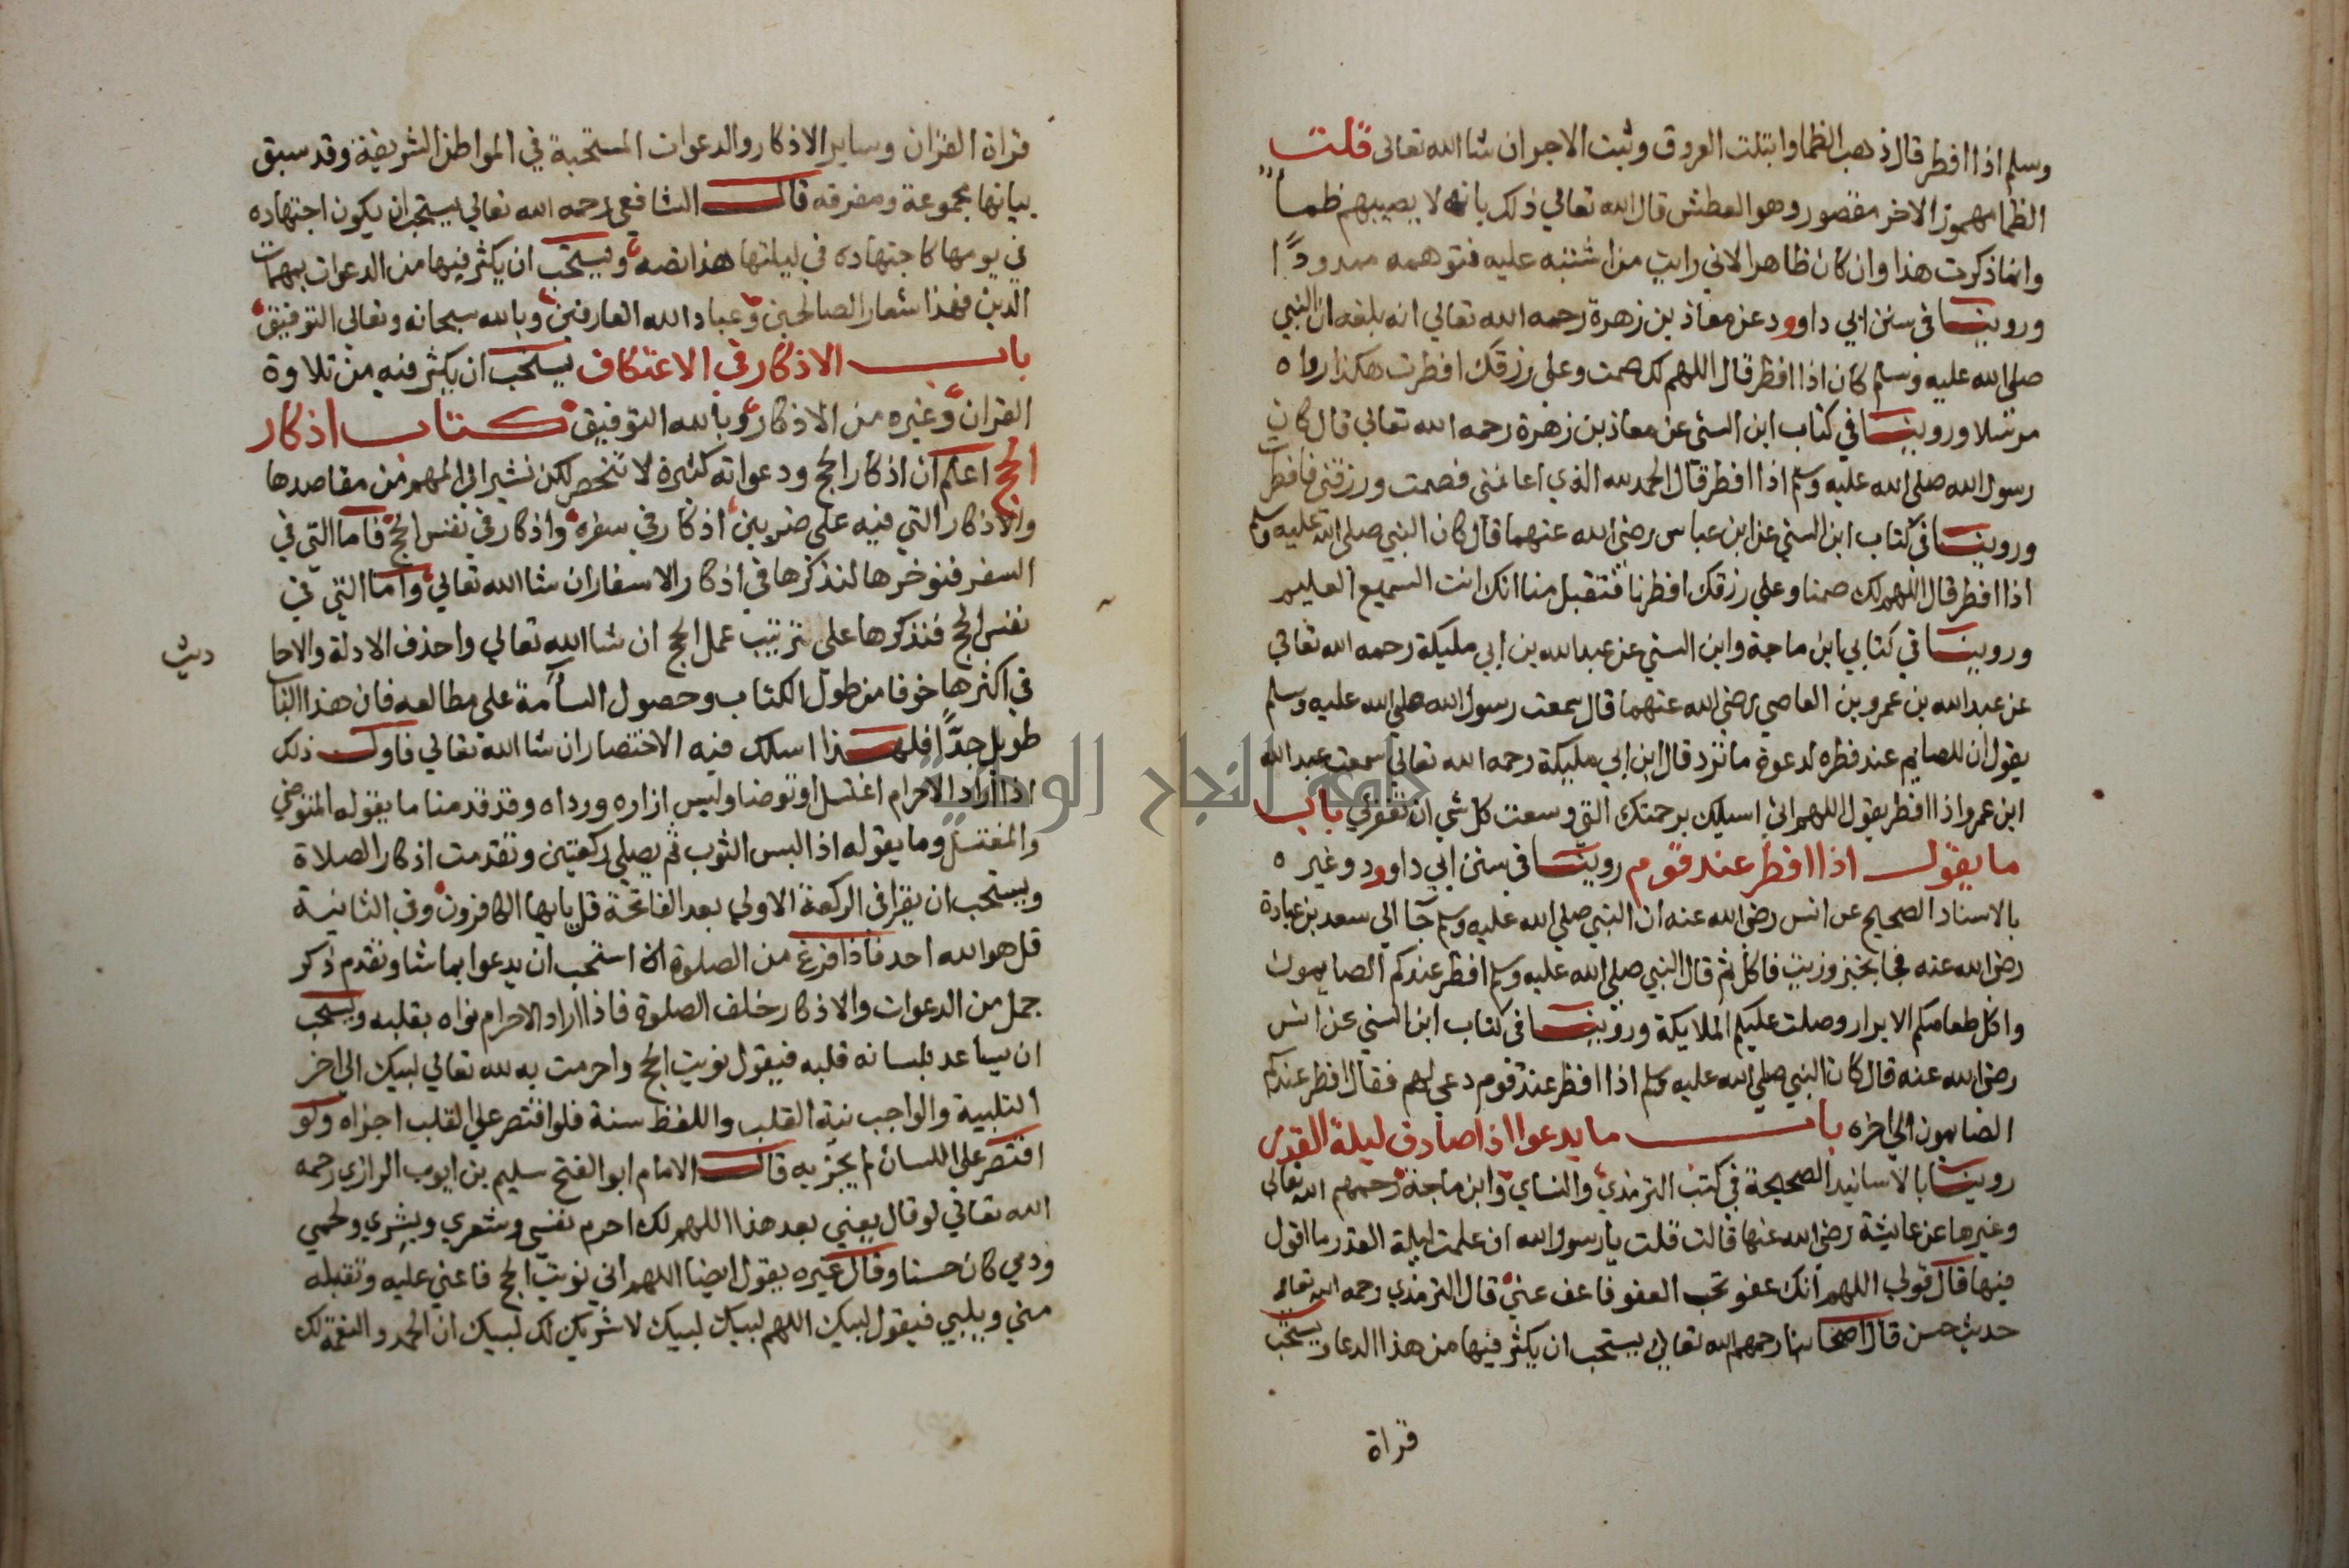 وسلم اذا افطر قال ذهب الظما وابتلت العروق وثبت الاجر ان شا الله تعالى قلت
الظما مهموز الاخر مقصور وهو العطش قال الله تعالي ذلك بانهم لا يصيبهم ظمأ
وانما ذكرت هذا وان كان ظاهرا لاني رايت من اشتبه عليه فتوهمه ممدودًا
وروينا في سنن ابي داوود عن معاذ بن زهرة رحمه الله تعالي انه بلغه ان النبي
صلى الله عليه وسلم كان اذا افطر قال اللهم لك صمت وعلى رزقك افطرت هكذا رواه
مرسلا وروينا في كتاب ابن السني عن معاذ بن زهرة رحمه الله تعالي قال كان
رسول الله صلى الله عليه وسلم اذا افطر قال الحمد لله الذي اعانني فصمت ورزقني فافطرت
وروينا في كتاب ابن السني عن ابن عباس رضي الله عنهما قال كان النبي صلى الله عليه وسلم
اذا افطر قال اللهم لك صمنا وعلي رزقك افطرنا فتقبل منا انك انت السميع العليم
وروينا في كتابي ابن ماجة وابن السني عن عبد الله بن ابي مليكة رحمه الله تعالي
عن عبد الله بن عمرو بن العاصي رضي الله عنهما قال سمعت رسول الله صلي الله عليه وسلم
يقول ان للصايم عند فطره لدعوة ما ترد قال ابن ابي مليكة رحمه الله تعالي سمعت عبد الله
ابن عمرو اذا افطر يقول اللهم اني اسيلك برحمتك التي وسعت كل شي ان تغفر لي باب
ما يقول اذا افطر عند قوم روينا في سنن ابي داوود وغيره
بالاسناد الصحيح عن انس رضي الله عنه ان النبي صلي الله عليه وسلم جا الي سعد بن عبادة
رضي الله عنه فجا بخبز وزيت فاكل ثم قال النبي صلي الله عليه وسلم افطر عندكم الصايمون
واكل طعامكم الابرار وصلت عليكم الملايكة وروينا في كتاب ابن السني عن انس
رضي الله عنه قال كان النبي صلي الله عليه وسلم اذا افطر عند قوم دعي لهم فقال افطر عندكم
الصايمون الي اخره باب ما يدعوا اذا صادف ليلة القدر
روينا بالاسانيد الصحيحة في كتب الترمذي والنساي وابن ماجة رحمهم الله تعالي
وغيرها عن عايشة رضي الله عنها قالت قلت يا رسول الله ان علمت ليلة القدر ما اقول
فيها قال قولي اللهم انك عفو تحب العفو فاعف عني قال الترمذي رحمه الله تعالي
حديث حسن قال اصحابنا رحمهم الله تعالي يستحب ان يكثر فيها من هذا الدعا ويستحب
قراة
قراة القران وساير الاذكار والدعوات المستحبة في المواطن الشريفة وقد سبق
بيانها مجموعة ومفرقه قال الشافعي رحمه الله تعالي يستحب ان يكون اجتهاده
في يومها كاجتهاده في ليلتها هذا نصه ويستحب ان يكثر فيها من الدعوات بمهمات
الدين فهذا شعار الصالحين وعباد الله العارفين وبالله سبحانه وتعالي التوفيق
باب الاذكار في الاعتكاف يستحب ان يكثر فيه من تلاوة
القران وغيره من الاذكار وبالله التوفيق كتاب اذكار
الحج اعلم ان اذكار الحج ودعواته كثيرة لا تنحصر لكن نشير الى المهم من مقاصدها
والاذكار التي فيه على ضربين اذكار في سفره واذكار في نفس الحج فاما التي في
السفر فنوخرها لنذكرها في اذكار الاسفار ان شا الله تعالي واما التي في
نفس الحج فنذكرها على ترتيب عمل الحج ان شا الله تعالي واحذف الادلة والاحا
ديث
في اكثرها خوفا من طول الكتاب وحصول السآمة على مطالعه فان هذا الباب
طويل جدًّا فلهذا اسلك فيه الاختصار ان شا الله تعالي فاول ذلك
اذا اراد الاحرام اغتسل او توضا ولبس ازاره ورداه وقد قدمنا ما يقوله المتوضي
والمغتسل وما يقوله اذا لبس الثوب ثم يصلي ركعتين وتقدمت اذكار الصلاة
ويستحب ان يقرا في الركعة الاولي بعد الفاتحة قل يايها الكافرون وفي الثانية
قل هو الله احد فاذا فرغ من الصلوة استحب ان يدعوا بما شا وتقدم ذكر
جمل من الدعوات والاذكار خلف الصلوة فاذا اراد الاحرام نواه بقلبه ويستحب
ان يساعد بلسانه قلبه فيقول نويت الحج واحرمت به لله تعالي لبيك الي اخر
التلبية والواجب نية القلب واللفظ سنة فلو اقتصر علي القلب اجزاه ولو
اقتصر على اللسان لم يجزيه قال الامام ابو الفتح سليم بن ايوب الرازي رحمه
الله تعالي لو قال يعني بعد هذا اللهم لك احرم نفسي وشعري وبشري ولحمي
ودمي كان حسنا وقال غيره يقول ايضا اللهم اني نويت الحج فاعني عليه وتقبله
مني ويلبي فيقول لبيك اللهم لبيك لبيك لا شريك لك لبيك ان الحمد والنعمة لك
جامعة النجاح الوطنية